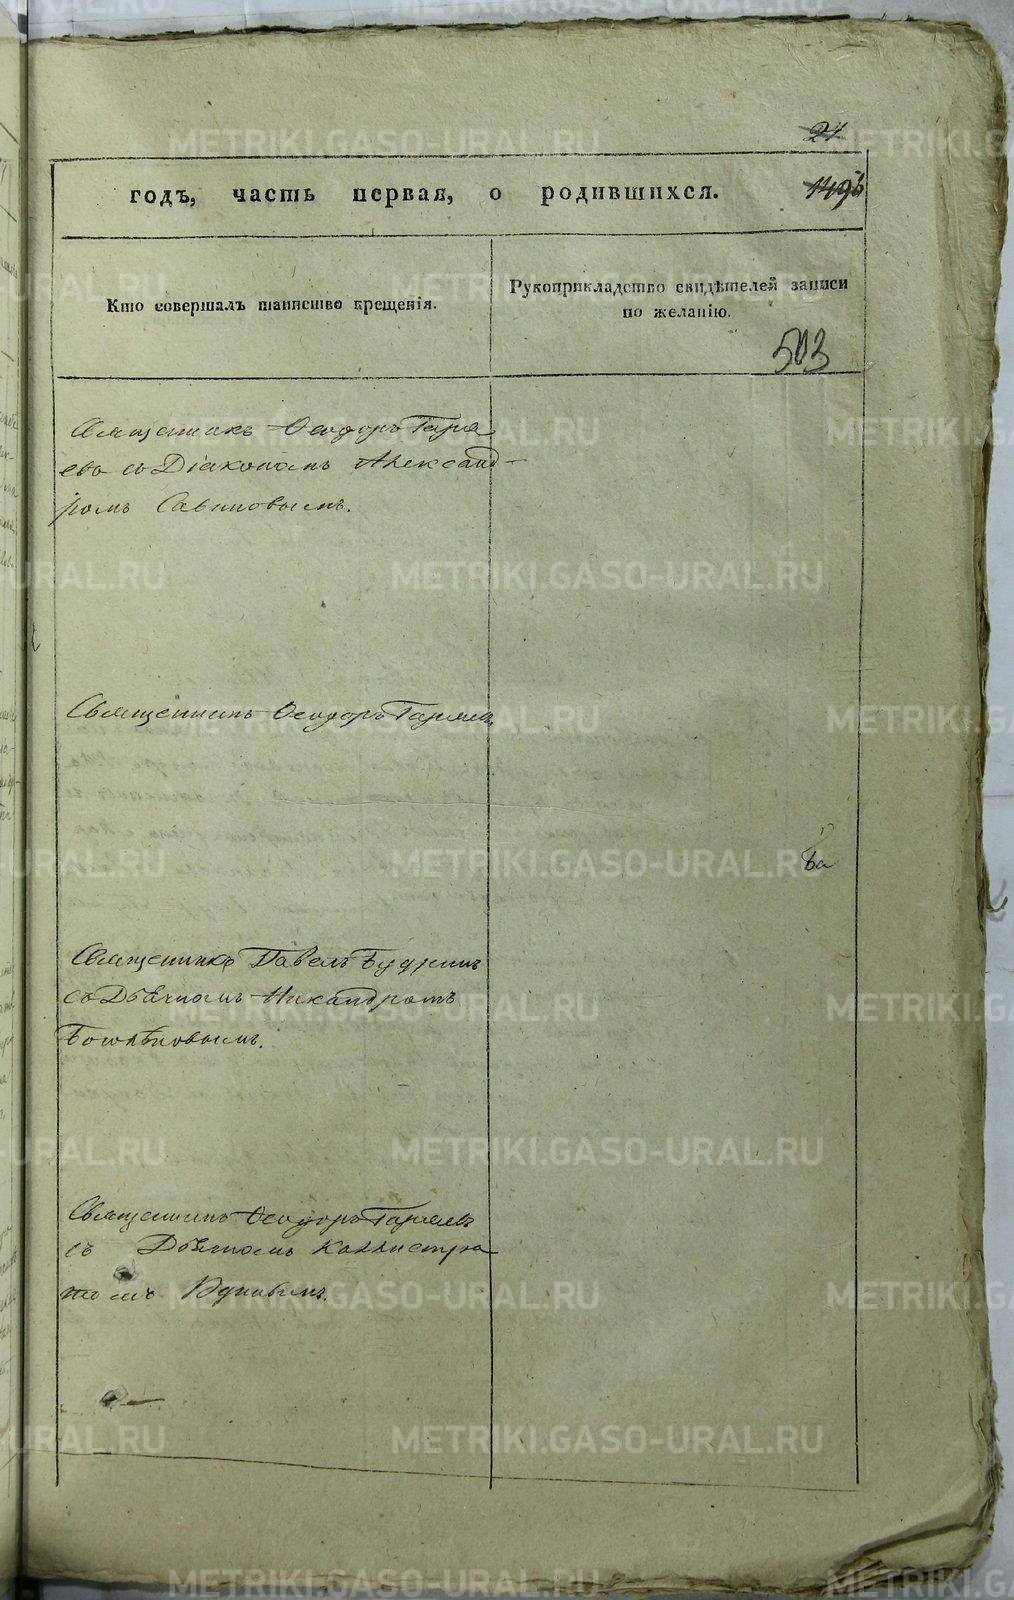 21
годъ, часть первая, о родившихся.
Кто совершалъ таинство крещенія.
Рукоприкладство свидѣтелей записи
по желанію.
503
Священникъ Ѳеодоръ Гаря
евъ съ Діакономъ Александ-
ромъ Савиновымъ.
Священникъ Ѳеодоръ Гаряевъ
Священникъ Павелъ Будринъ
съ Дьячкомъ Никандромъ
Священникъ Ѳеодоръ Гаряевъ
съ Дьячкомъ Каллистра
томъ
METRIKI.GASO-URAL.RU